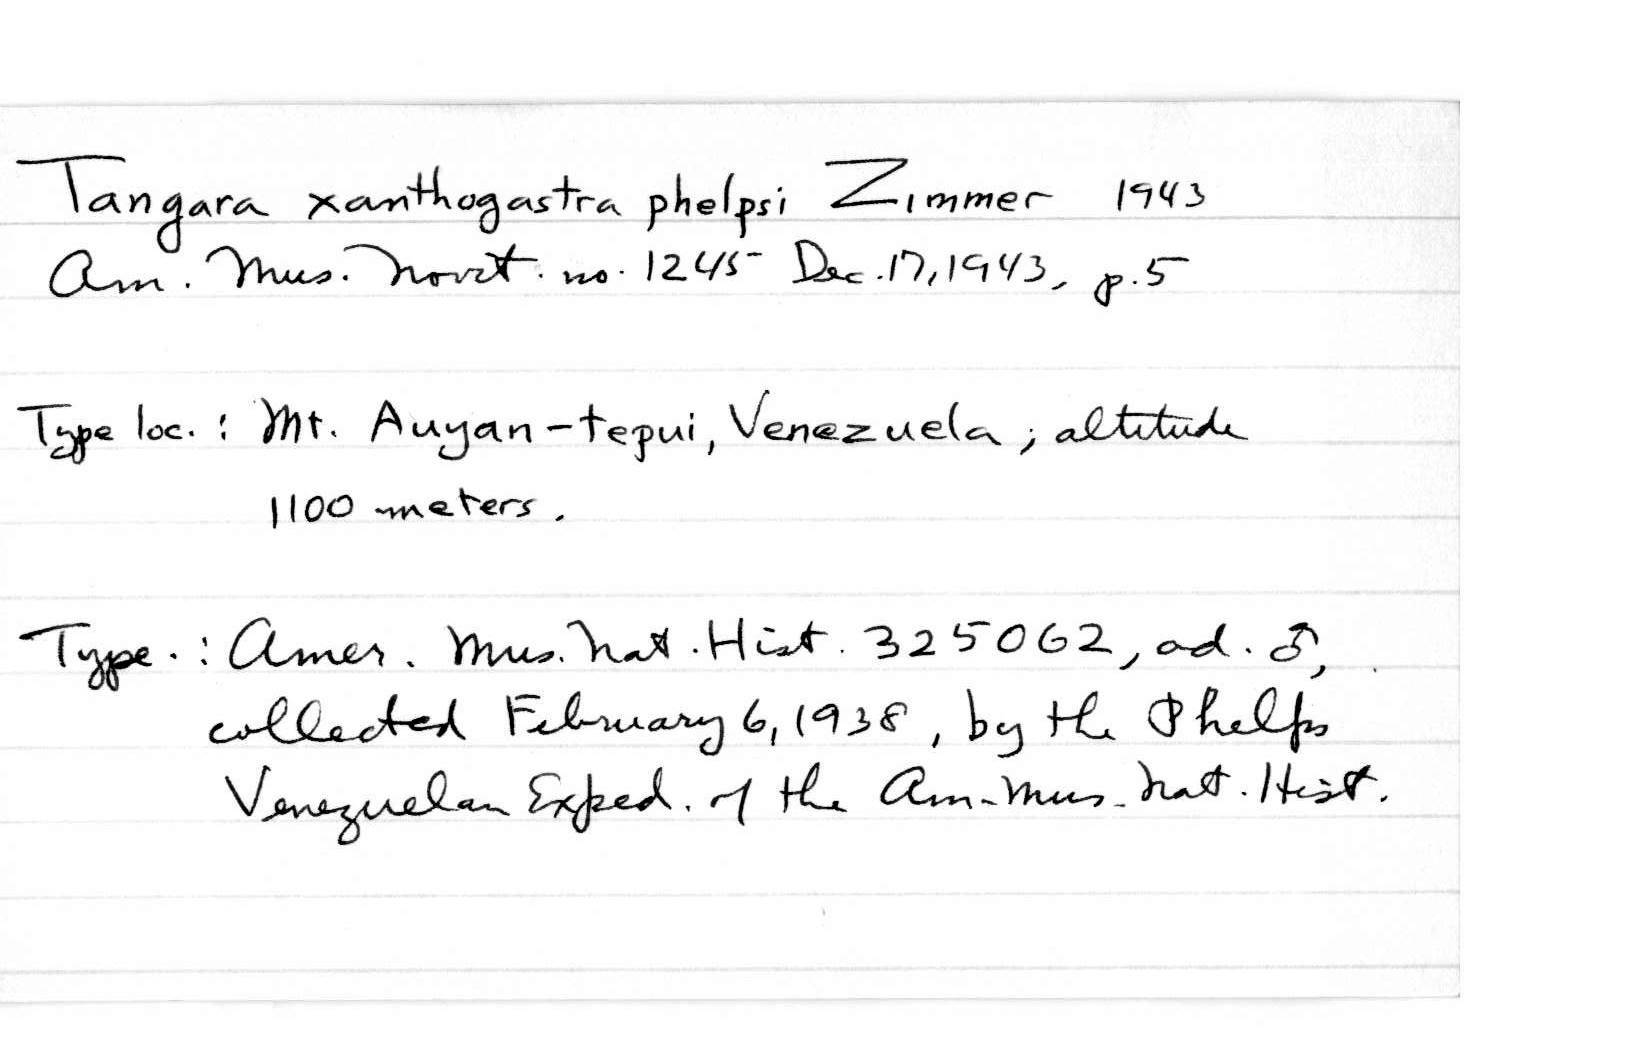 Tangara xanthogastra phelpsi Zimmer 1943
Am. Mus. Novit. no. 1245 Dec. 17, 1943, p. 5
Type loc. : Mt. Auyan-tepui, Venezuela ; altitude
1100 meters.
Type. : Amer. Mus. Nat. Hist. 325062, ad. ♂,
collected February 6, 1938, by the Phelps
Venezuelan Exped. of the Am. Mus. Nat. Hist.